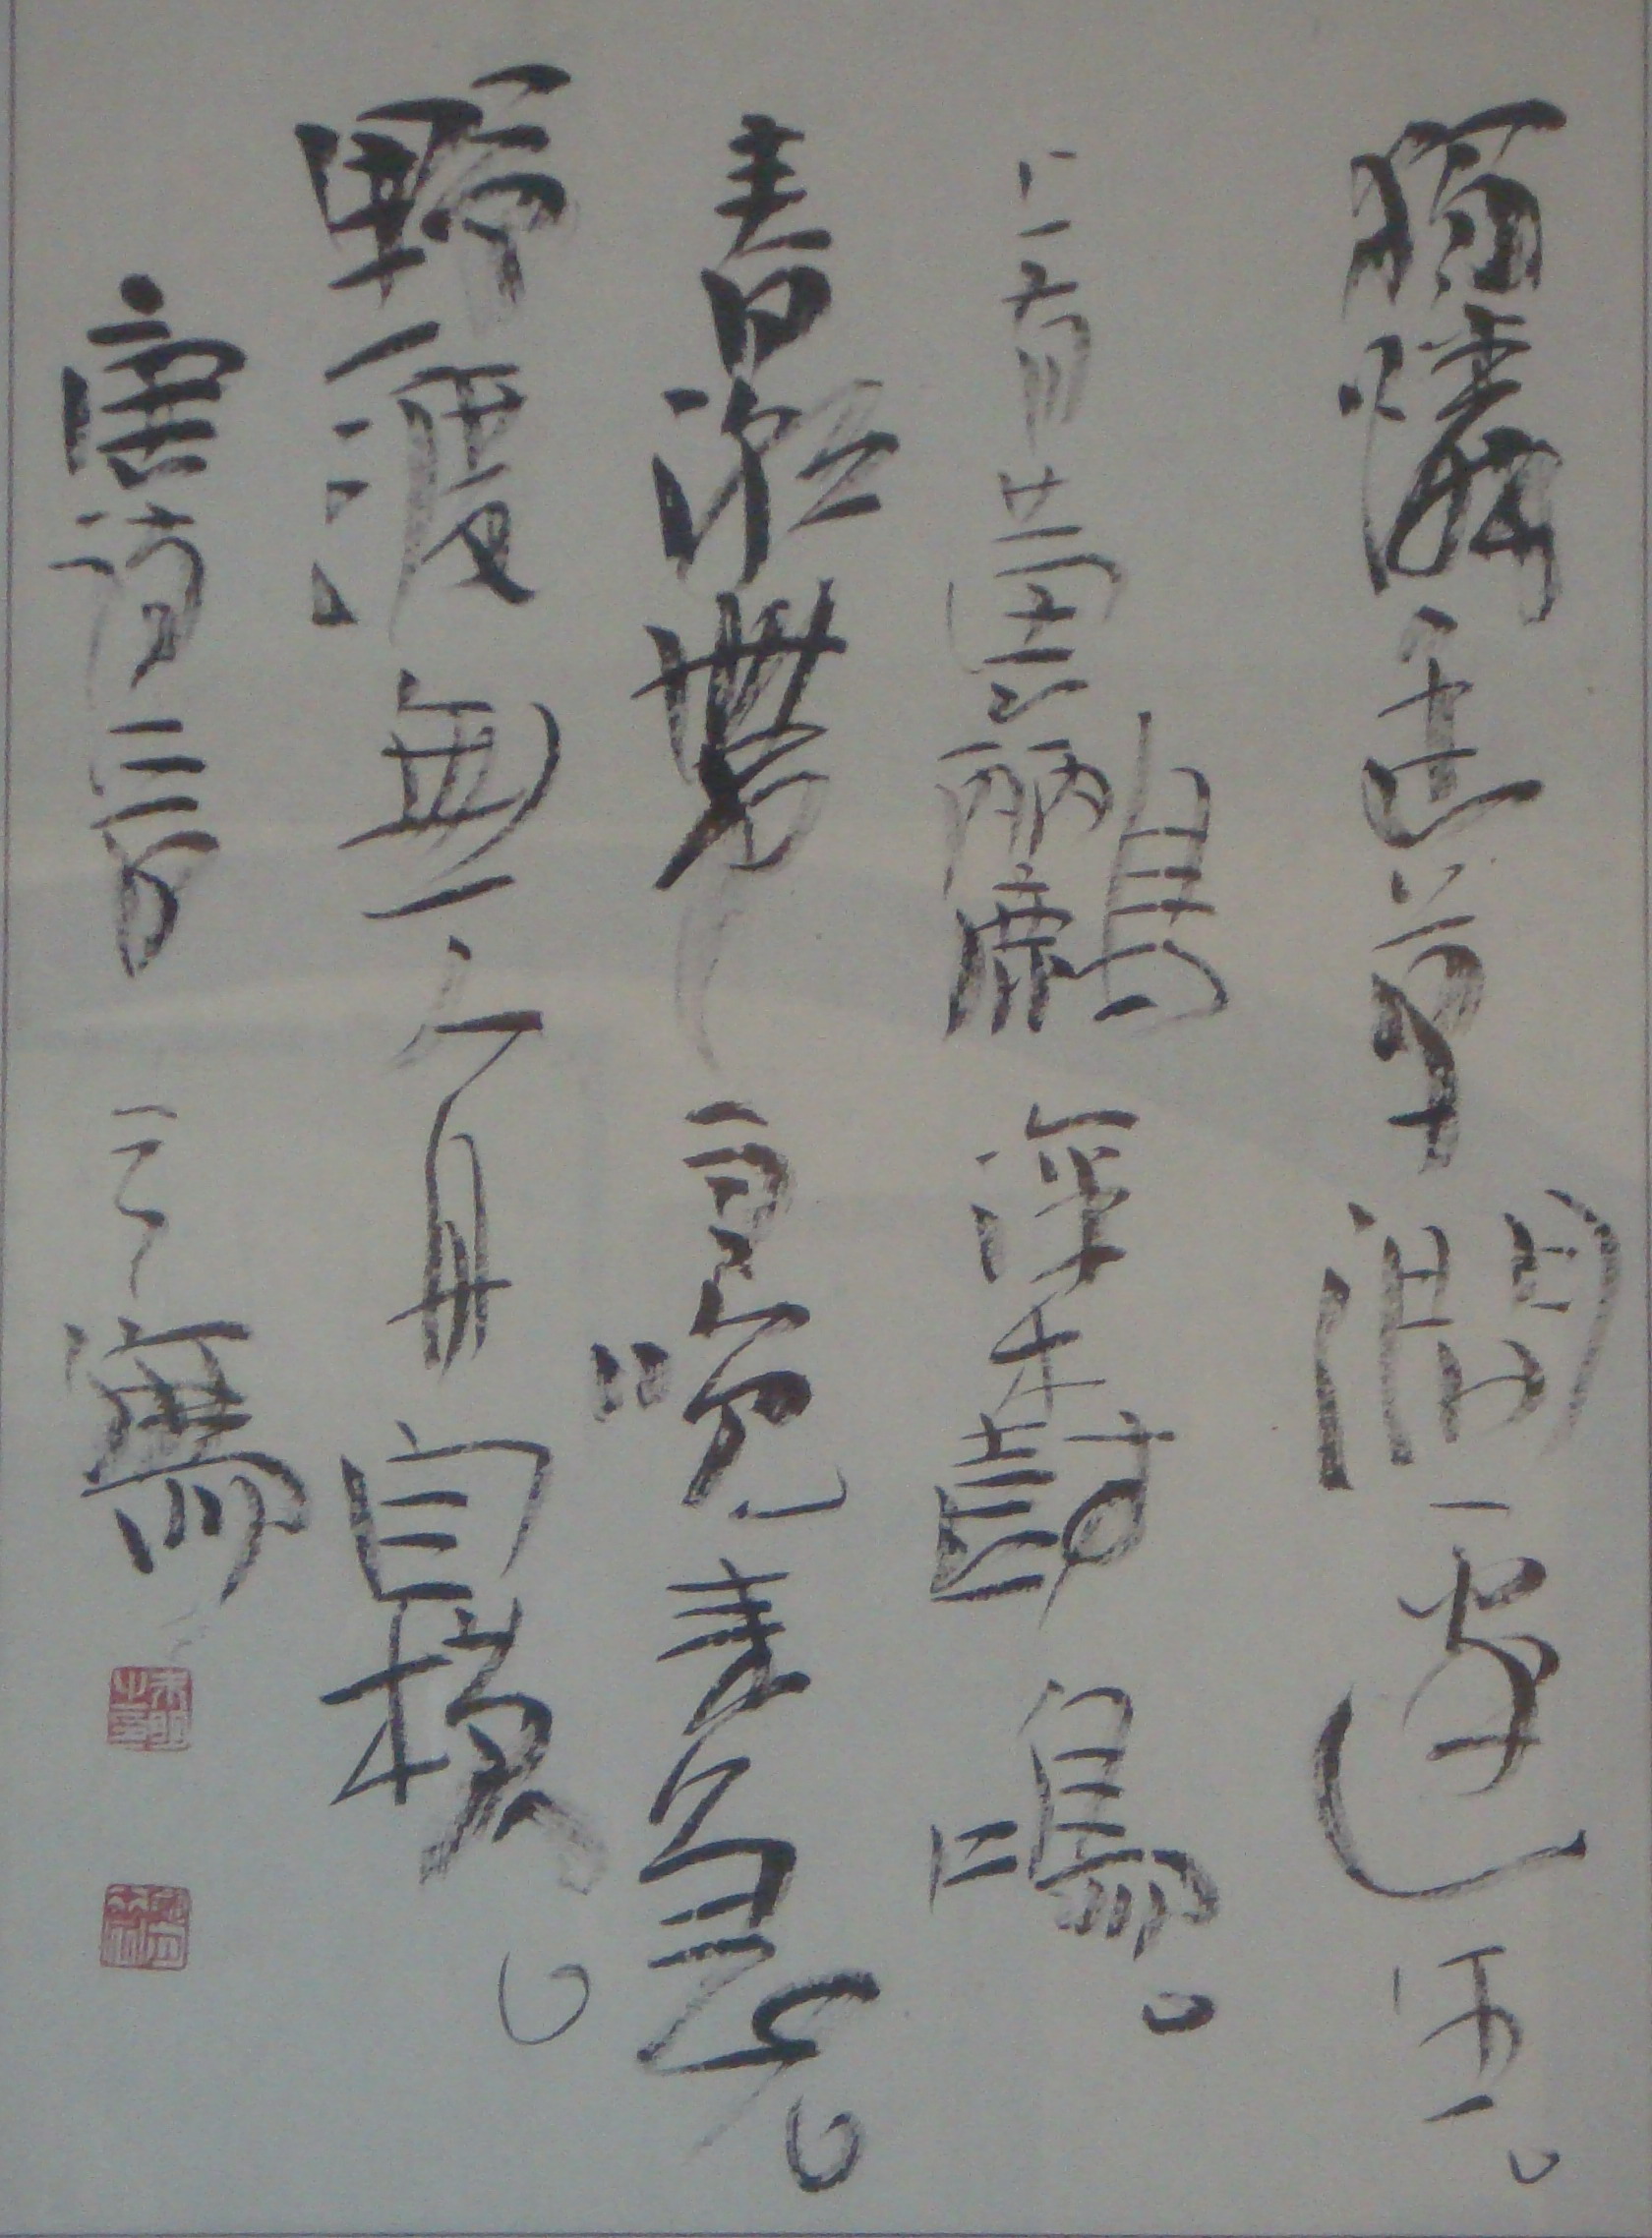 獨憐幽草澗邊生。
上有黃鸝深樹鳴。
春潮帶雨晚來急。
野渡無人舟自橫。
唐詩三 寫